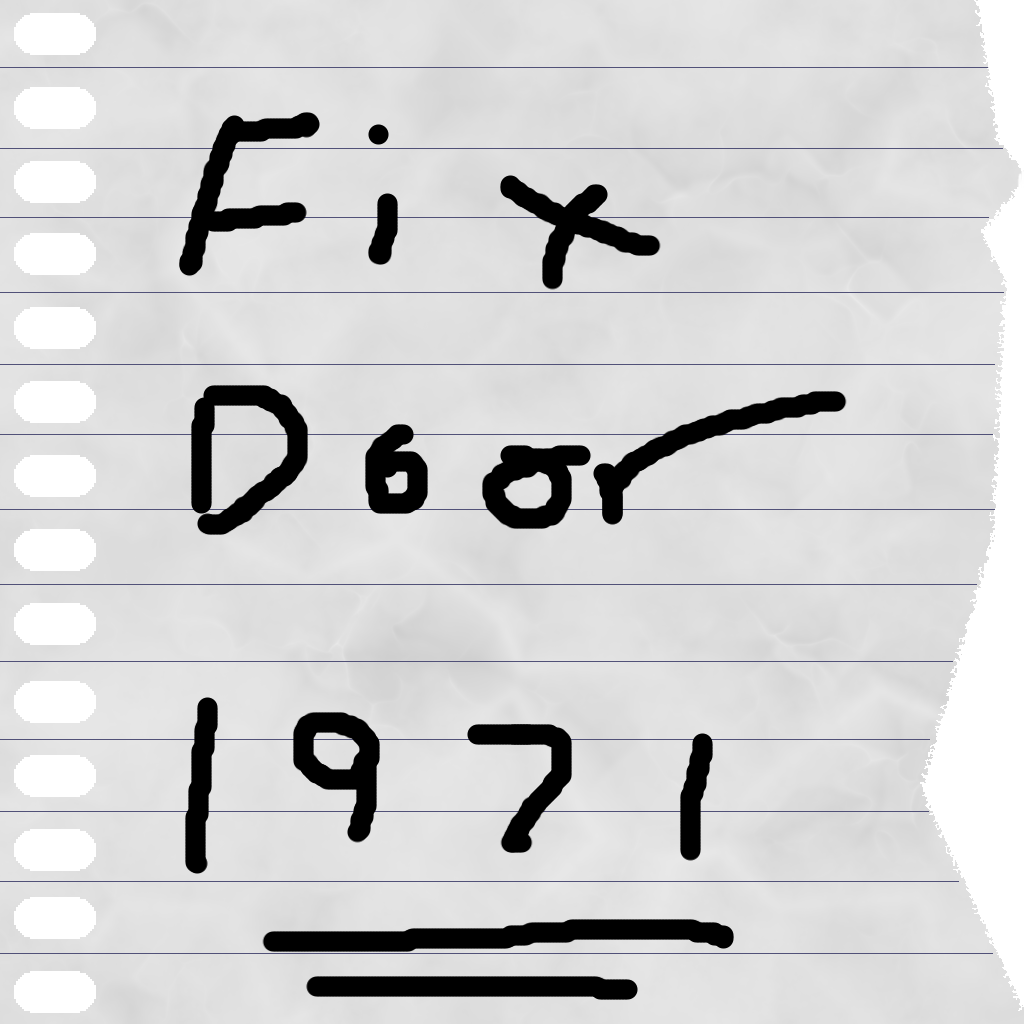 Fix
Door
1971